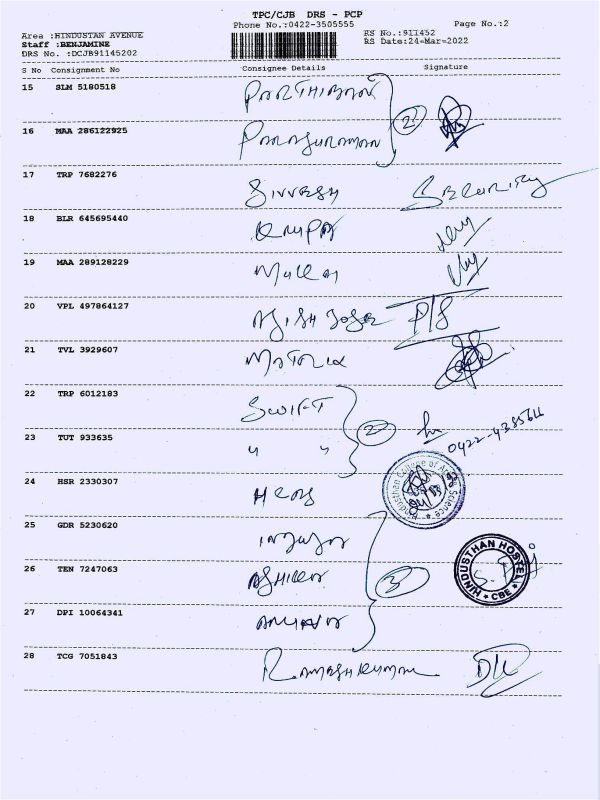 TPC/CJB DRS - PCP
Phone No.:0422-3505555
Page No.:2
Area :HINDUSTAN AVENUE
RS No.:911452
Staff :BENJAMINE
RS Date:24-Mar-2022
DRS No. :DCJB91145202
S No Consignment No Consignee Details Signature
15 SLM 5180518 PARTHIBAN
2
16 MAA 286122925 Parasuraman
17 TRP 7682276 SIVVESH Security
18 BLR 645695440 KRUPA
19 MAA 289128229
20 VPL 497864127 AJISH JOSE P/S
21 TVL 3929607
22 TRP 6012183 SWIFT
2
0422-4385611
23 TUT 933635 " "
24 HSR 2330307 HEAD
Hindusthan College of Arts Science
25 GDR 5230620
26 TEN 7247063
3
HINDUSTHAN HOSTEL
CBE
27 DPI 10064341
28 TCG 7051843 RAMESHKUMAR